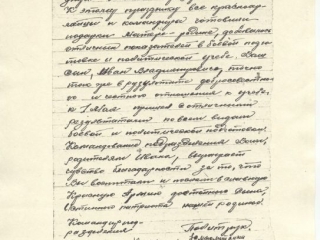 К этому празднику все красноар-
мейцы и командиры готовили
подарки Матери-родине, добиваясь
отличных показателей в боевой подго-
товке и политической учебе. Ваш
сын, Иван Владимирович,
в результате добросовестно-
го и честного отношения к учебе
к 1 Мая пришел с отличными
результатами по всем видам
боевой и политической подготовки.
Командование подразделения Вам,
родителям Ивана, выражает
чувство благодарности за то, что
Вы воспитали и послали в
Красную Армию достойного сына,
патриота нашей родины.
Командир под-
разделения
Политрук